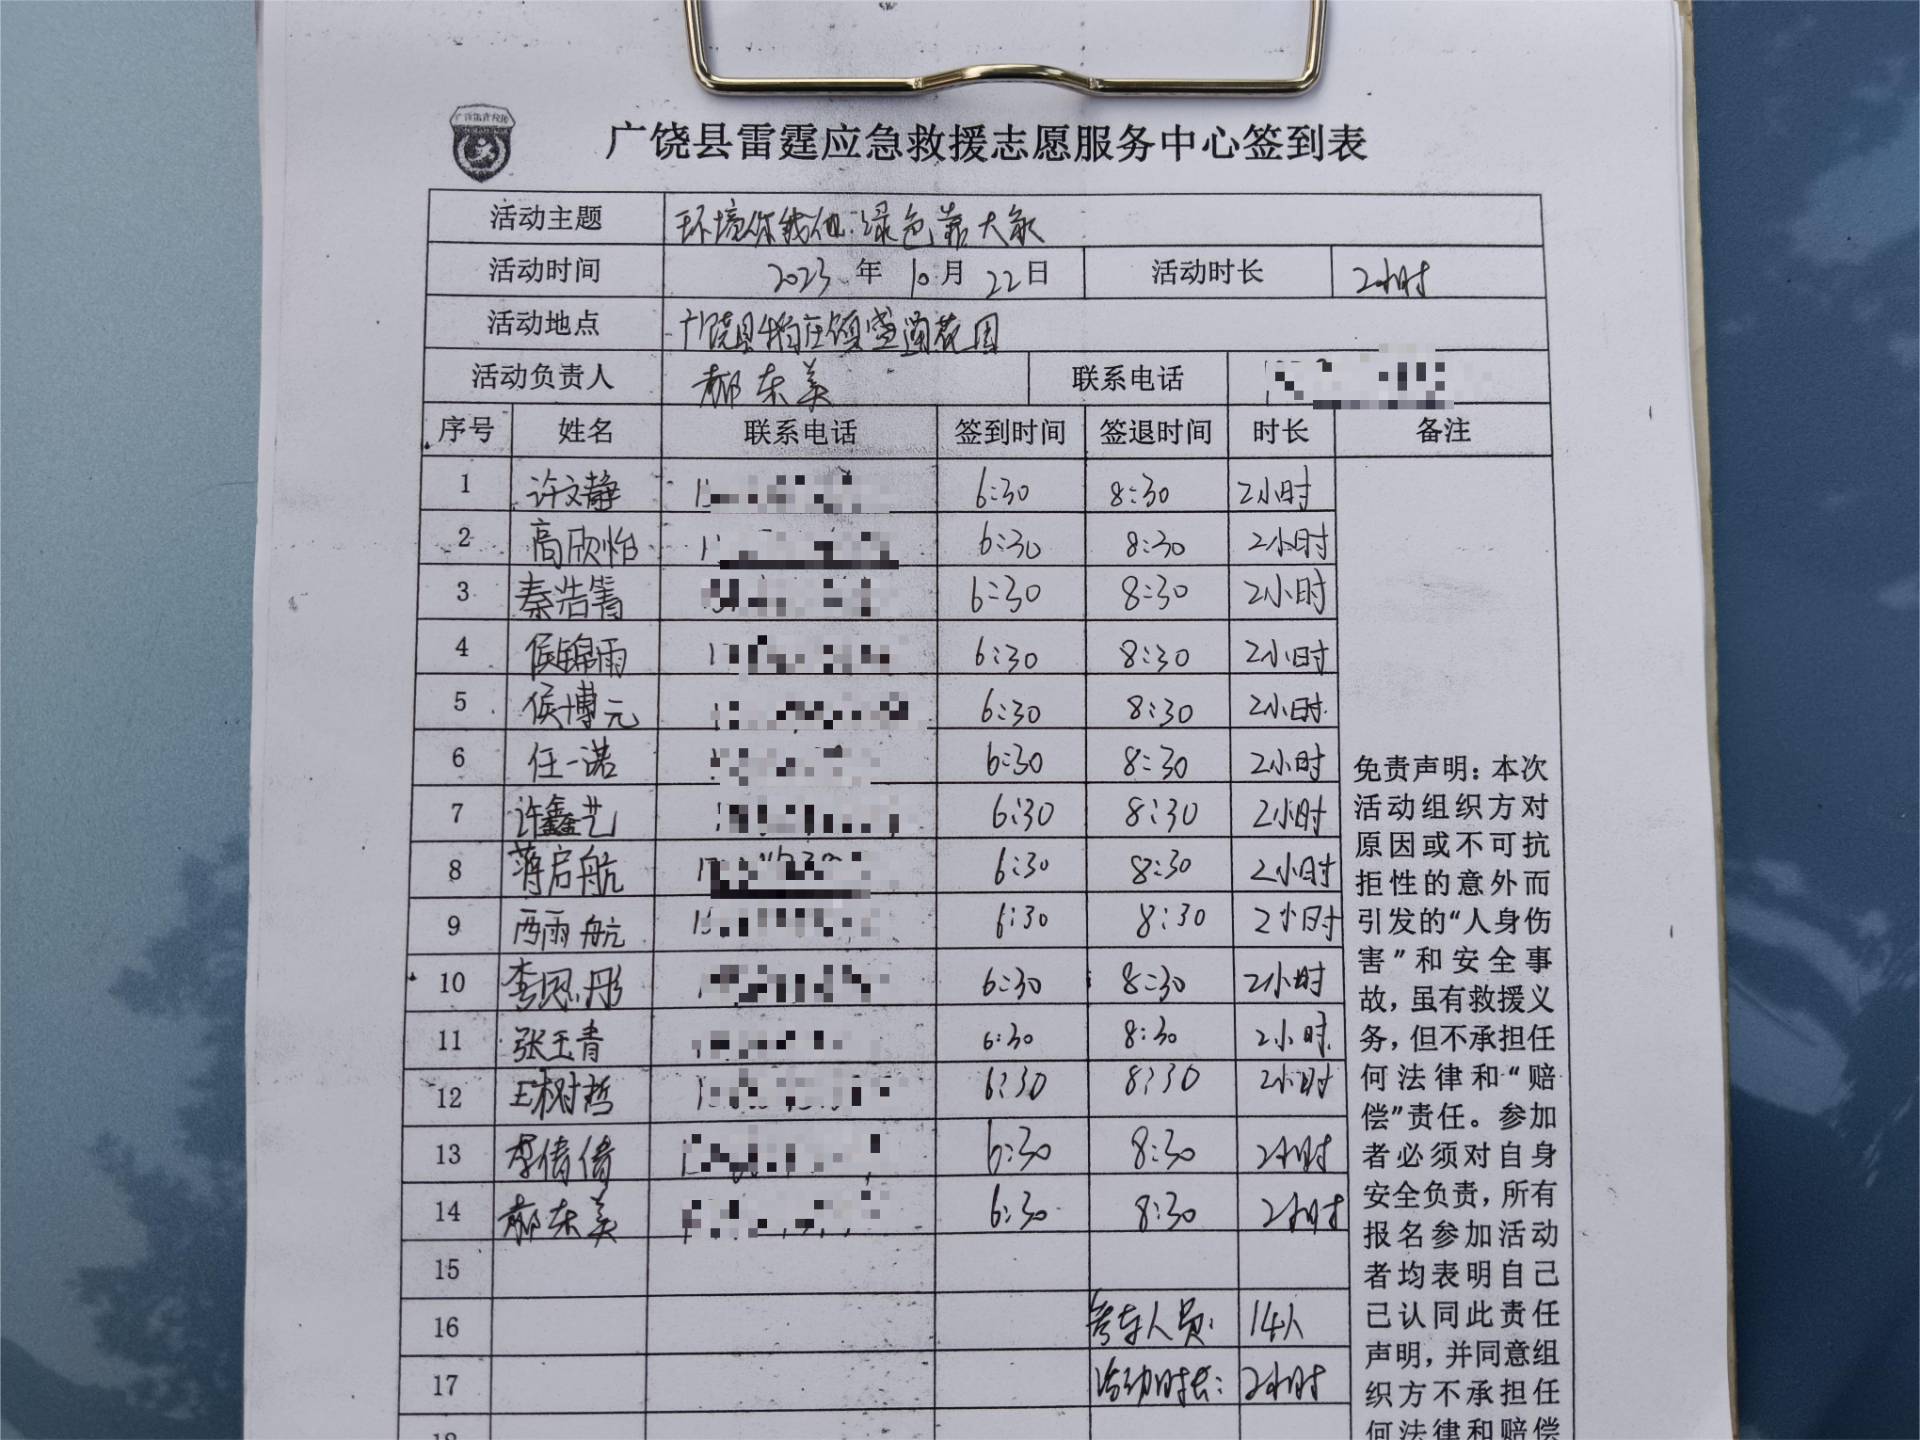 广饶县雷霆应急救援志愿服务中心签到表
活动主题 环境你我他:绿色靠大家
活动时间 2023 年 10 月 22 日 活动时长 2小时
活动地点 广饶县 花园
活动负责人 郝东美 联系电话
序号 姓名 联系电话 签到时间 签退时间 时长 备注
1 许文静 6:30 8:30 2小时
2 高欣怡 6:30 8:30 2小时
3 秦浩箐 6:30 8:30 2小时
4 侯锦雨 6:30 8:30 2小时
5 侯博元 6:30 8:30 2小时
6 任一诺 6:30 8:30 2小时
7 许鑫艺 6:30 8:30 2小时
8 蒋启航 6:30 8:30 2小时
9 雨航 6:30 8:30 2小时
10 李恩彤 6:30 8:30 2小时
11 张玉青 6:30 8:30 2小时
12 王树哲 6:30 8:30 2小时
13 李倩倩 6:30 8:30 2小时
14 郝东美 6:30 8:30 2小时
15
16 人员: 14人
17 活动时长: 2小时
18
免责声明:本次
活动组织方对
原因或不可抗
拒性的意外而
引发的“人身伤
害”和安全事
故,虽有救援义
务,但不承担任
何法律和“赔
偿”责任。参加
者必须对自身
安全负责,所有
报名参加活动
者均表明自己
已认同此责任
声明,并同意组
织方不承担任
何法律和赔偿